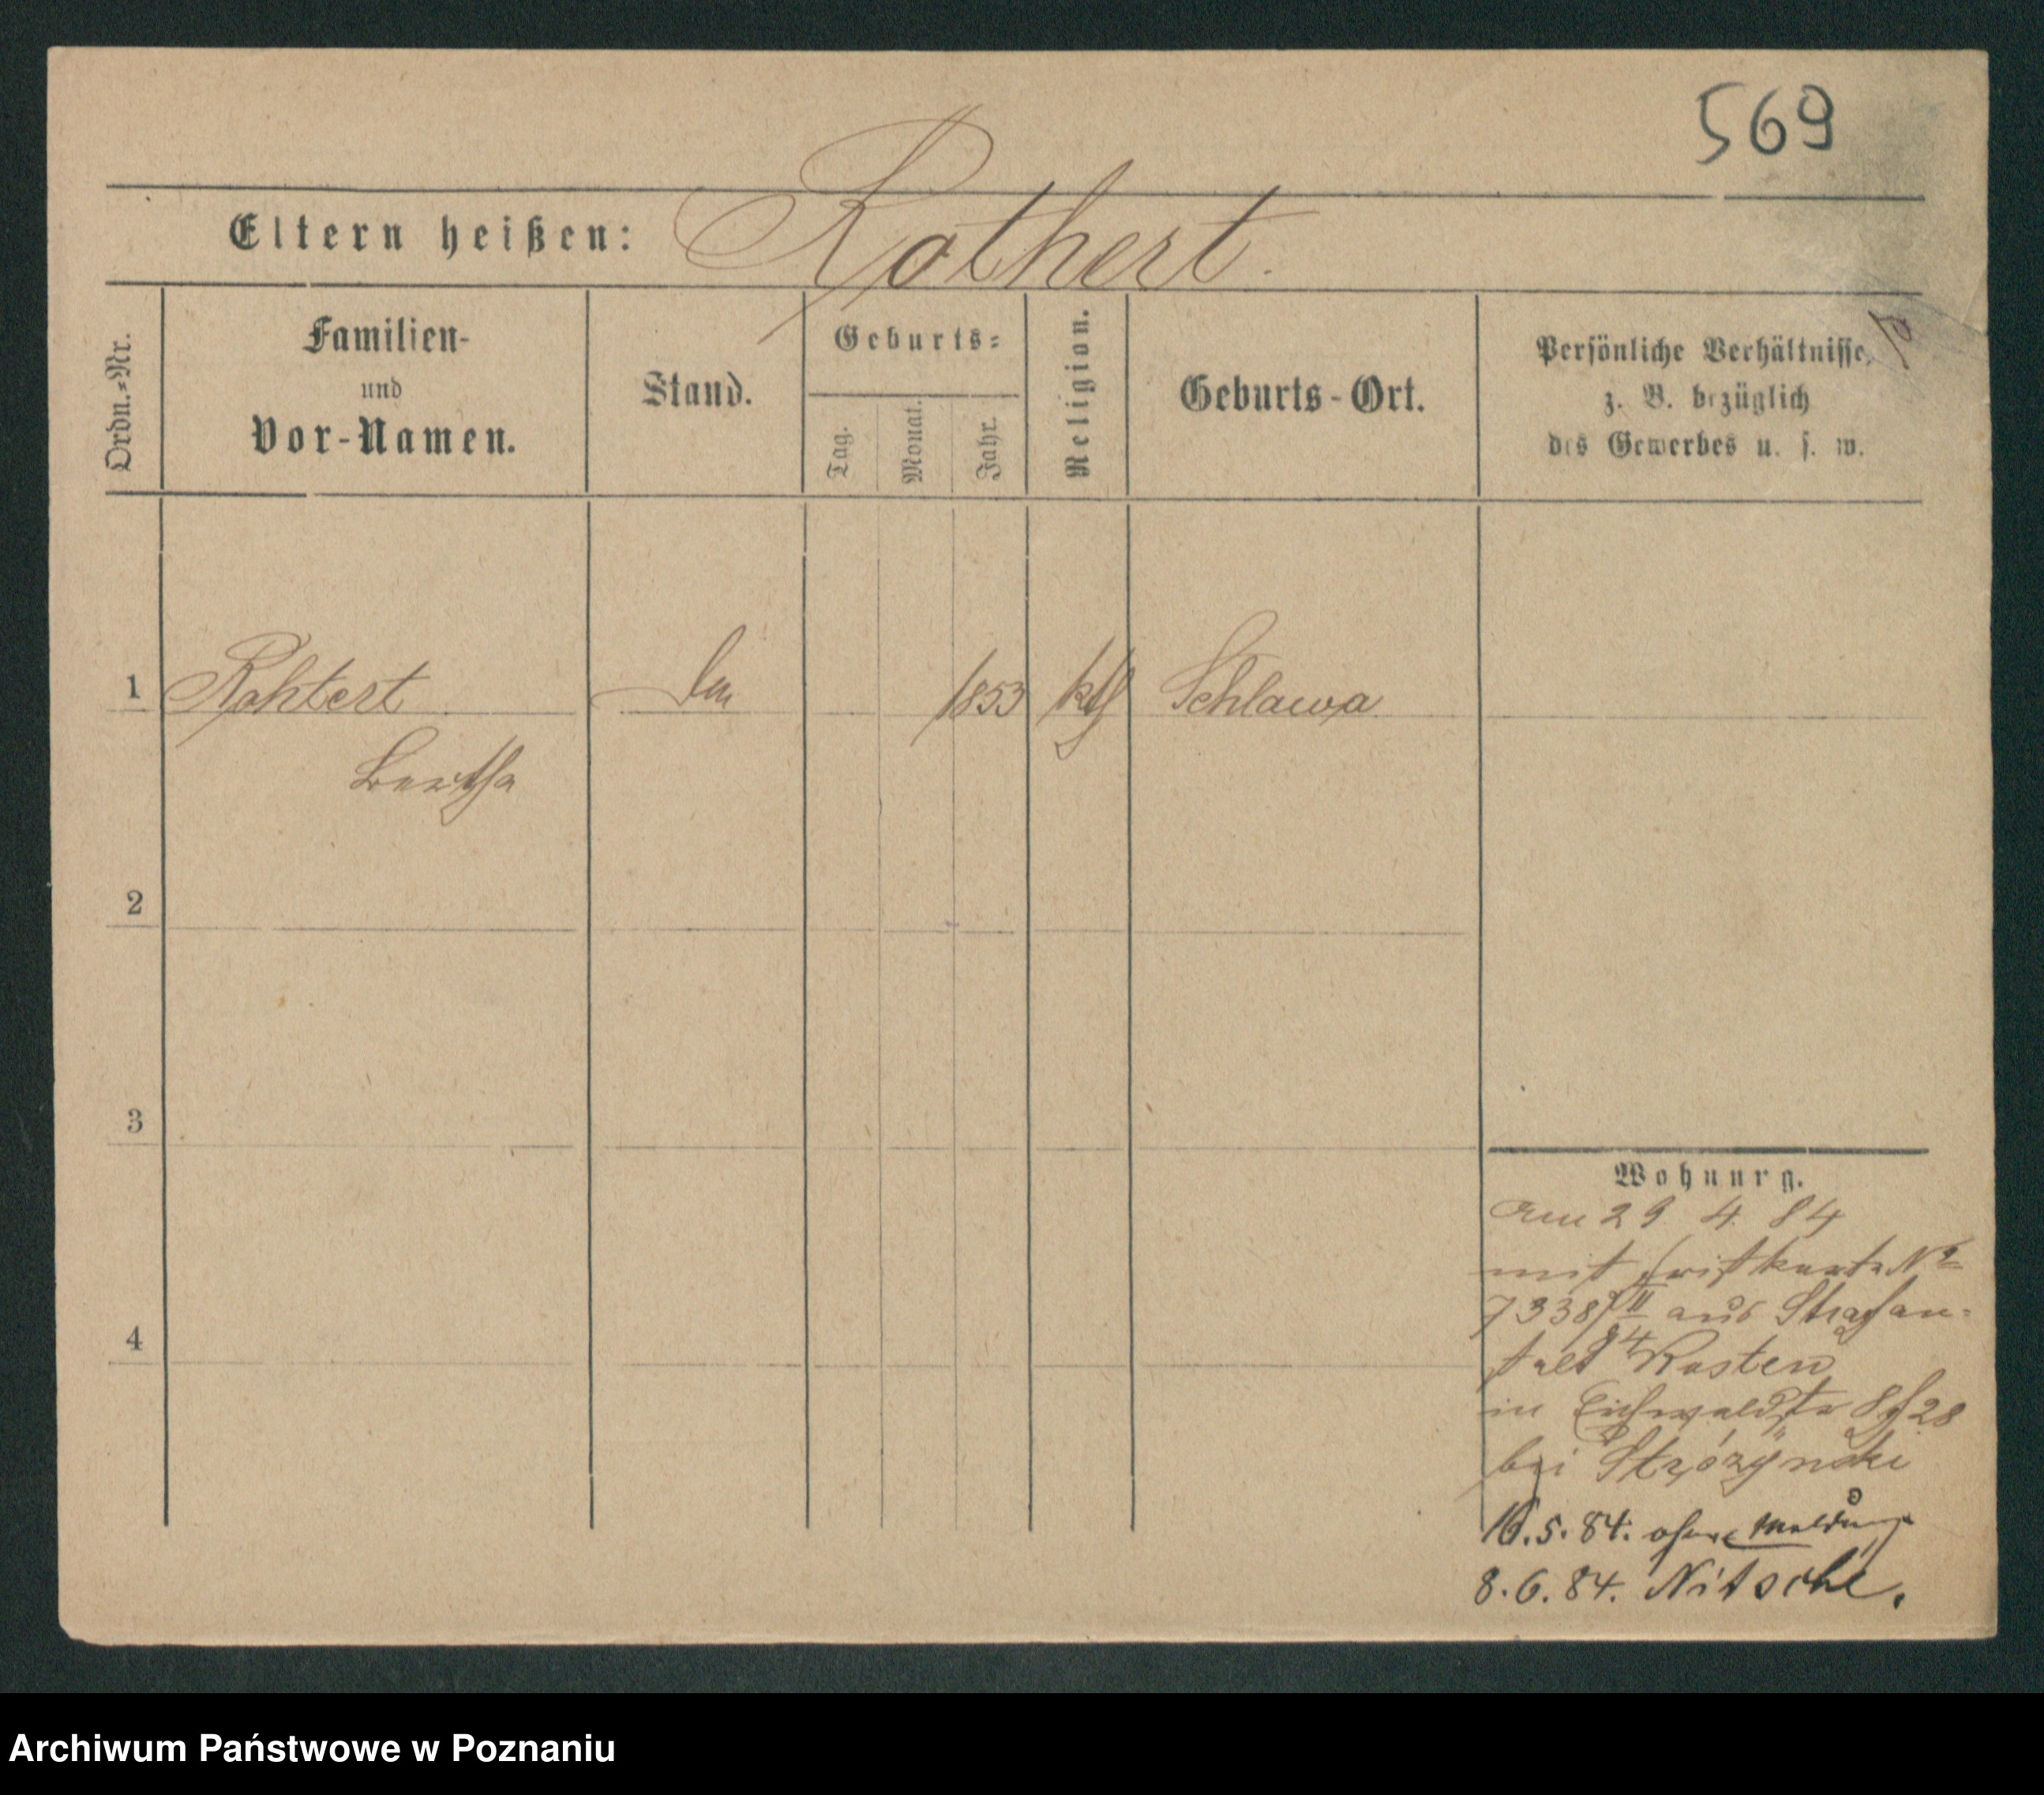 569
Eltern heißen: Rothert.
Ordn.=Nr.
Familien-
und
Vor-Namen.
Stand.
Geburts=
Tag.
Monat.
Jahr.
Religion.
Geburts-Ort.
Persönliche Verhältnisse,
z. B. bezüglich
des Gewerbes u. s. w.
1 Rohtert 1853 kth Schlawa
Bertha
2
3
4
Wohnung.
Am 29. 4. 84
mit
7338/II aus Strafan-
84
stalt Kosten
in Eichwaldstr 28
bei Strózÿnski
16.5.84. ohne Meldung
8.6.84. Nitsche.
Archiwum Państwowe w Poznaniu